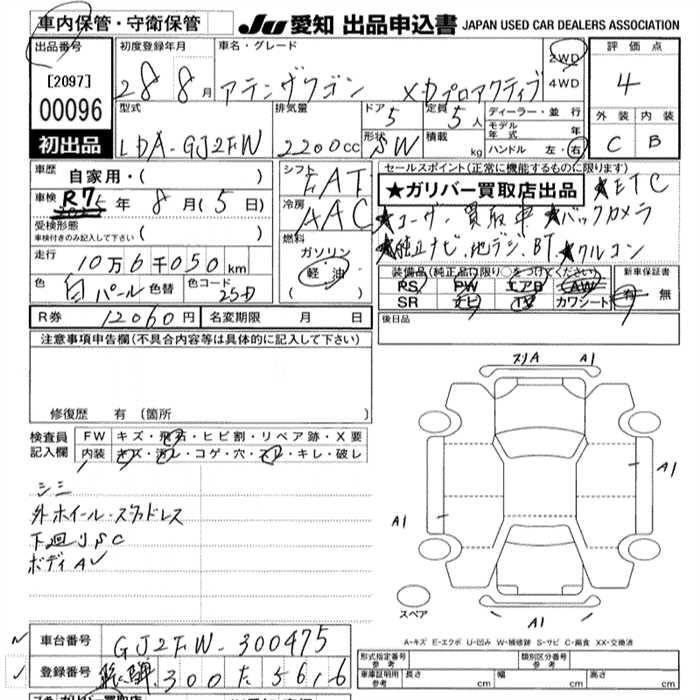 車内保管・守衛保管
JU 愛知 出品申込書 JAPAN USED CAR DEALERS ASSOCIATION
出品番号
[2097]
00096
初出品
初度登録年月
28年8月
車名・グレード
アテンザワゴン XDプロアクティブ
2WD
4WD
評価点
4
外装 内装
C B
型式
LDA-GJ2FW
排気量
2200cc
ドア 5
形状 SW
定員 5人
積載 kg
ディーラー・並行
モデル年式 年
ハンドル 左・右
車歴
自家用・( )
車検
R7年8月(5日)
受検形態
車検付きのみ記入して下さい ( )
走行
10万6千050km
色 白パール 色替 色コード 25D
シフト FAT
冷房 AAC
燃料
ガソリン
軽油
( )
セールスポイント(正常に機能するものに限ります)
★ガリバー買取店出品 ★ETC
★ユーザー買取車 ★バックカメラ
★純正ナビ、地デジ、BT ★クルコン
装備品(純正品に限り○をつけてください)
RS PW エアB AW
SR ナビ TV カワシート
新車保証書
有・無
R券 12060円 名変期限 月 日
後日品
注意事項申告欄(不具合内容等は具体的に記入して下さい)
修復歴 有(箇所
検査員記入欄
FW キズ・飛石・ヒビ割・リペア跡・X要
内装 キズ・汚レ・コゲ・穴・スレ・キレ・破レ
シミ
外ホイール・スタッドレス
下廻りSC
ボディA
スリA A1
A1
A1
A1
スペア
A-キズ E-エクボ U-凹み W-補修跡 S-サビ C-腐食 XX-交換済
車台番号 GJ2FW-300475
登録番号 300 た 5616
形式指定番号 参考
類別区分番号 参考
車庫証明用 参考 長さ cm 幅 cm 高さ cm